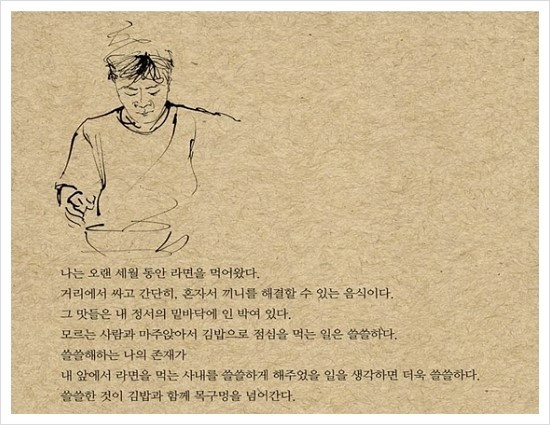 나는 오랜 세월 동안 라면을 먹어왔다.
거리에서 싸고 간단히, 혼자서 끼니를 해결할 수 있는 음식이다.
그 맛들은 내 정서의 밑바닥에 인 박여 있다.
모르는 사람과 마주앉아서 김밥으로 점심을 먹는 일은 쓸쓸하다.
쓸쓸해하는 나의 존재가
내 앞에서 라면을 먹는 사내를 쓸쓸하게 해주었을 일을 생각하면 더욱 쓸쓸하다.
쓸쓸한 것이 김밥과 함께 목구멍을 넘어간다.